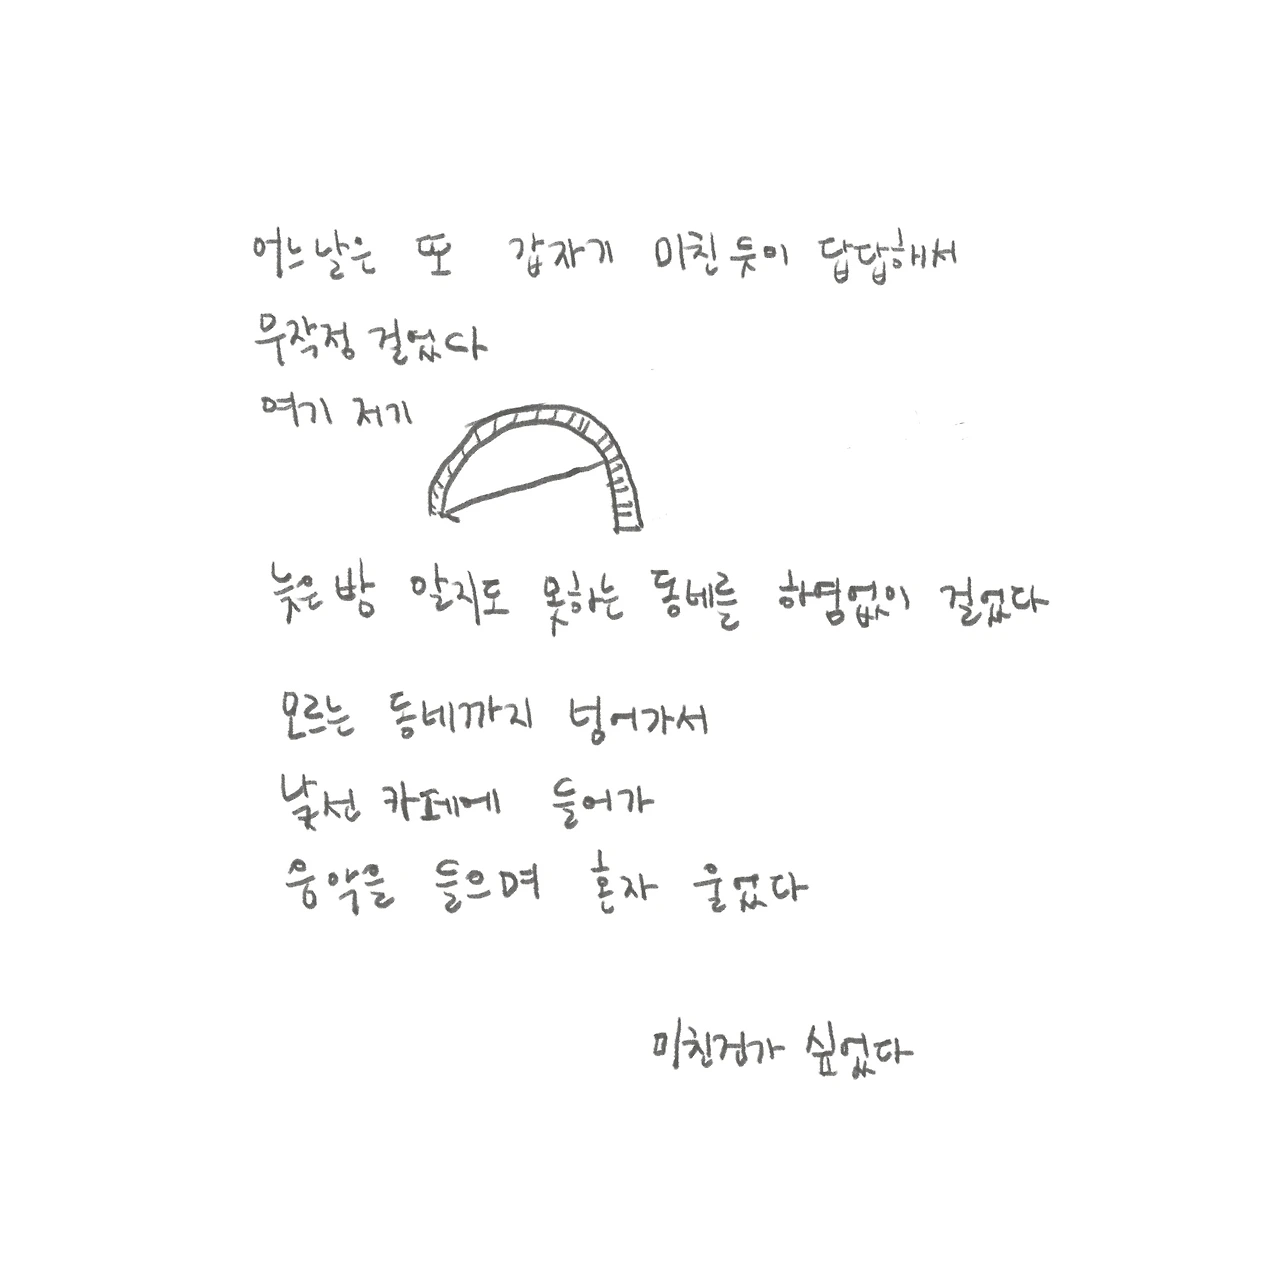 어느날은 또 갑자기 미친듯이 답답해서
무작정 걸었다
여기 저기
늦은 밤 알지도 못하는 동네를 하염없이 걸었다
모르는 동네까지 넘어가서
낯선 카페에 들어가
음악을 들으며 혼자 울었다
미친건가 싶었다